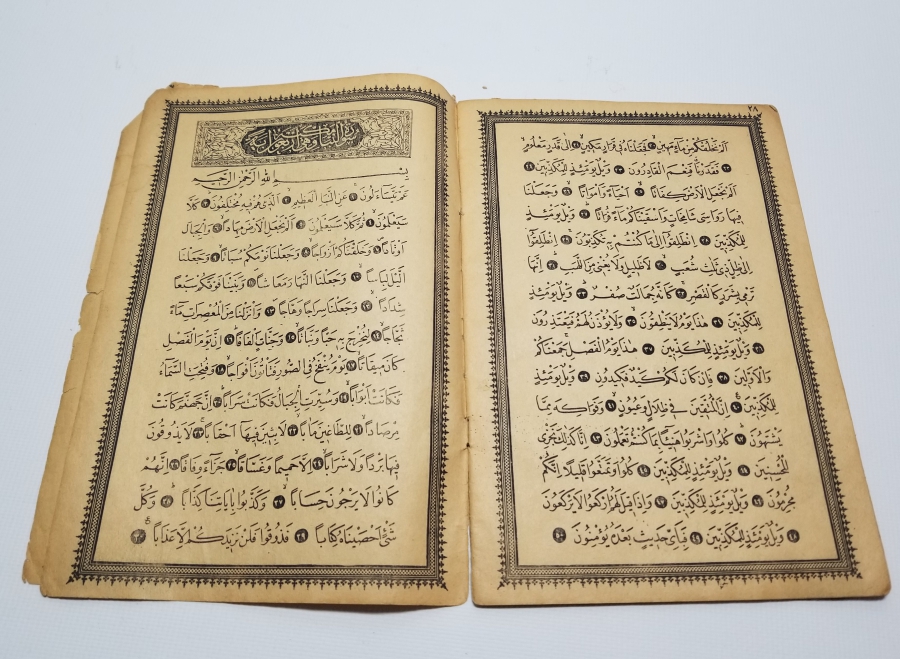 ٢٨
اَلَمْ نَخْلُقْكُمْ مِنْ مَآءٍ مَهِينٍ ٢٠ فَجَعَلْنَاهُ فِى قَرَارٍ مَكِينٍ ٢١ اِلٰى قَدَرٍ مَعْلُومٍ
٢٢ فَقَدَرْنَا فَنِعْمَ الْقَادِرُونَ ٢٣ وَيْلٌ يَوْمَئِذٍ لِلْمُكَذِّبِينَ ٢٤
اَلَمْ نَجْعَلِ الْاَرْضَ كِفَاتًا ٢٥ اَحْيَآءً وَاَمْوَاتًا ٢٦ وَجَعَلْنَا
فِيهَا رَوَاسِىَ شَامِخَاتٍ وَاَسْقَيْنَاكُمْ مَآءً فُرَاتًا ٢٧ وَيْلٌ يَوْمَئِذٍ
لِلْمُكَذِّبِينَ ٢٨ اِنْطَلِقُوٓا اِلٰى مَا كُنْتُمْ بِهِ تُكَذِّبُونَ ٢٩ اِنْطَلِقُوٓا
اِلٰى ظِلٍّ ذِى ثَلٰثِ شُعَبٍ ٣٠ لَا ظَلِيلٍ وَلَا يُغْنِى مِنَ اللَّهَبِ ٣١ اِنَّهَا
تَرْمِى بِشَرَرٍ كَالْقَصْرِ ٣٢ كَاَنَّهُ جِمَالَتٌ صُفْرٌ ٣٣ وَيْلٌ يَوْمَئِذٍ
لِلْمُكَذِّبِينَ ٣٤ هٰذَا يَوْمُ لَا يَنْطِقُونَ ٣٥ وَلَا يُؤْذَنُ لَهُمْ فَيَعْتَذِرُونَ
٣٦ وَيْلٌ يَوْمَئِذٍ لِلْمُكَذِّبِينَ ٣٧ هٰذَا يَوْمُ الْفَصْلِ جَمَعْنَاكُمْ
وَالْاَوَّلِينَ ٣٨ فَاِنْ كَانَ لَكُمْ كَيْدٌ فَكِيدُونِ ٣٩ وَيْلٌ يَوْمَئِذٍ
لِلْمُكَذِّبِينَ ٤٠ اِنَّ الْمُتَّقِينَ فِى ظِلَالٍ وَعُيُونٍ ٤١ وَفَوَاكِهَ مِمَّا
يَشْتَهُونَ ٤٢ كُلُوا وَاشْرَبُوا هَنِيٓئًا بِمَا كُنْتُمْ تَعْمَلُونَ ٤٣ اِنَّا كَذٰلِكَ نَجْزِى
الْمُحْسِنِينَ ٤٤ وَيْلٌ يَوْمَئِذٍ لِلْمُكَذِّبِينَ ٤٥ كُلُوا وَتَمَتَّعُوا قَلِيلًا اِنَّكُمْ
مُجْرِمُونَ ٤٦ وَيْلٌ يَوْمَئِذٍ لِلْمُكَذِّبِينَ ٤٧ وَاِذَا قِيلَ لَهُمُ ارْكَعُوا لَا يَرْكَعُونَ
٤٨ وَيْلٌ يَوْمَئِذٍ لِلْمُكَذِّبِينَ ٤٩ فَبِاَىِّ حَدِيثٍ بَعْدَهُ يُؤْمِنُونَ ٥٠
بِسْمِ اللّٰهِ الرَّحْمٰنِ الرَّحِيمِ
عَمَّ يَتَسَآءَلُونَ ١ عَنِ النَّبَاِ الْعَظِيمِ ٢ اَلَّذِى هُمْ فِيهِ مُخْتَلِفُونَ ٣ كَلَّا
سَيَعْلَمُونَ ٤ ثُمَّ كَلَّا سَيَعْلَمُونَ ٥ اَلَمْ نَجْعَلِ الْاَرْضَ مِهَادًا ٦ وَالْجِبَالَ
اَوْتَادًا ٧ وَخَلَقْنَاكُمْ اَزْوَاجًا ٨ وَجَعَلْنَا نَوْمَكُمْ سُبَاتًا ٩ وَجَعَلْنَا
الَّيْلَ لِبَاسًا ١٠ وَجَعَلْنَا النَّهَارَ مَعَاشًا ١١ وَبَنَيْنَا فَوْقَكُمْ سَبْعًا
شِدَادًا ١٢ وَجَعَلْنَا سِرَاجًا وَهَّاجًا ١٣ وَاَنْزَلْنَا مِنَ الْمُعْصِرَاتِ مَآءً
ثَجَّاجًا ١٤ لِنُخْرِجَ بِهِ حَبًّا وَنَبَاتًا ١٥ وَجَنَّاتٍ اَلْفَافًا ١٦ اِنَّ يَوْمَ الْفَصْلِ
كَانَ مِيقَاتًا ١٧ يَوْمَ يُنْفَخُ فِى الصُّورِ فَتَاْتُونَ اَفْوَاجًا ١٨ وَفُتِحَتِ السَّمَآءُ
فَكَانَتْ اَبْوَابًا ١٩ وَسُيِّرَتِ الْجِبَالُ فَكَانَتْ سَرَابًا ٢٠ اِنَّ جَهَنَّمَ كَانَتْ
مِرْصَادًا ٢١ لِلطَّاغِينَ مَاٰبًا ٢٢ لَابِثِينَ فِيهَا اَحْقَابًا ٢٣ لَا يَذُوقُونَ
فِيهَا بَرْدًا وَلَا شَرَابًا ٢٤ اِلَّا حَمِيمًا وَغَسَّاقًا ٢٥ جَزَآءً وِفَاقًا ٢٦ اِنَّهُمْ
كَانُوا لَا يَرْجُونَ حِسَابًا ٢٧ وَكَذَّبُوا بِاٰيَاتِنَا كِذَّابًا ٢٨ وَكُلَّ
شَىْءٍ اَحْصَيْنَاهُ كِتَابًا ٢٩ فَذُوقُوا فَلَنْ نَزِيدَكُمْ اِلَّا عَذَابًا ٣٠